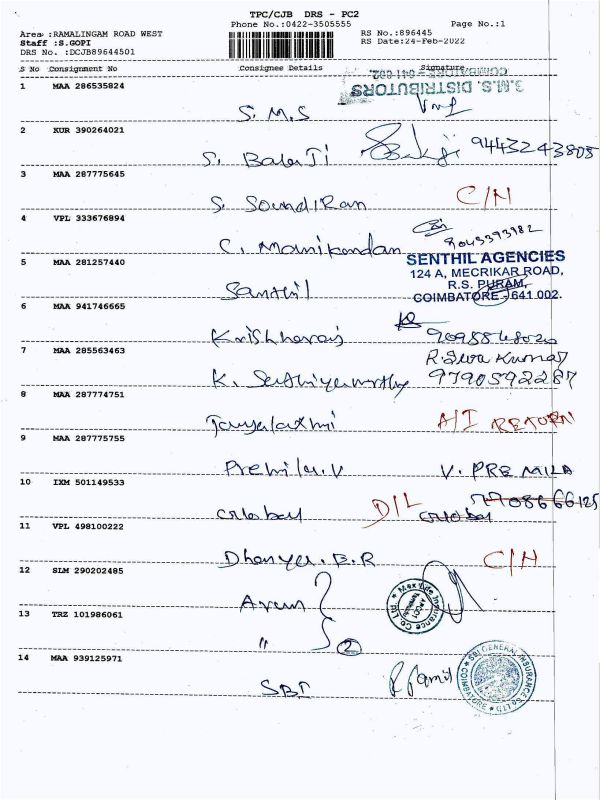 TPC/CJB DRS - PC2
Phone No.:0422-3505555 Page No.:1
Area :RAMALINGAM ROAD WEST RS No.:896445
Staff :S.GOPI RS Date:24-Feb-2022
DRS No. :DCJB89644501
S No Consignment No Consignee Details Signature
1 MAA 286535824 S.M.S DISTRIBUTORS COIMBATORE - 641 002.
S. M. S
2 KUR 390264021
S. Balaji 9443243805
3 MAA 287775645
S. SoundiRan C/N
4 VPL 333676894
C. Manikandan 9043393982
5 MAA 281257440 SENTHIL AGENCIES
124 A, MECRIKAR ROAD,
R.S. PURAM,
Santhil COIMBATORE - 641 002.
6 MAA 941746665
Krishharaj
7 MAA 285563463 R. Siva Kumar
K. Sathiyamorthy 9790592287
8 MAA 287774751
RETURN
9 MAA 287775755
Premila.V V. PREMILA
10 IXM 501149533 7708666125
D/L
11 VPL 498100222
Dhanya. B. R C/N
12 SLM 290202485
Arun Max Life Insurance Co. Ltd.
13 TRZ 101986061
" 2
14 MAA 939125971 SBI GENERAL INSURANCE CO LTD COIMBATORE
SBI